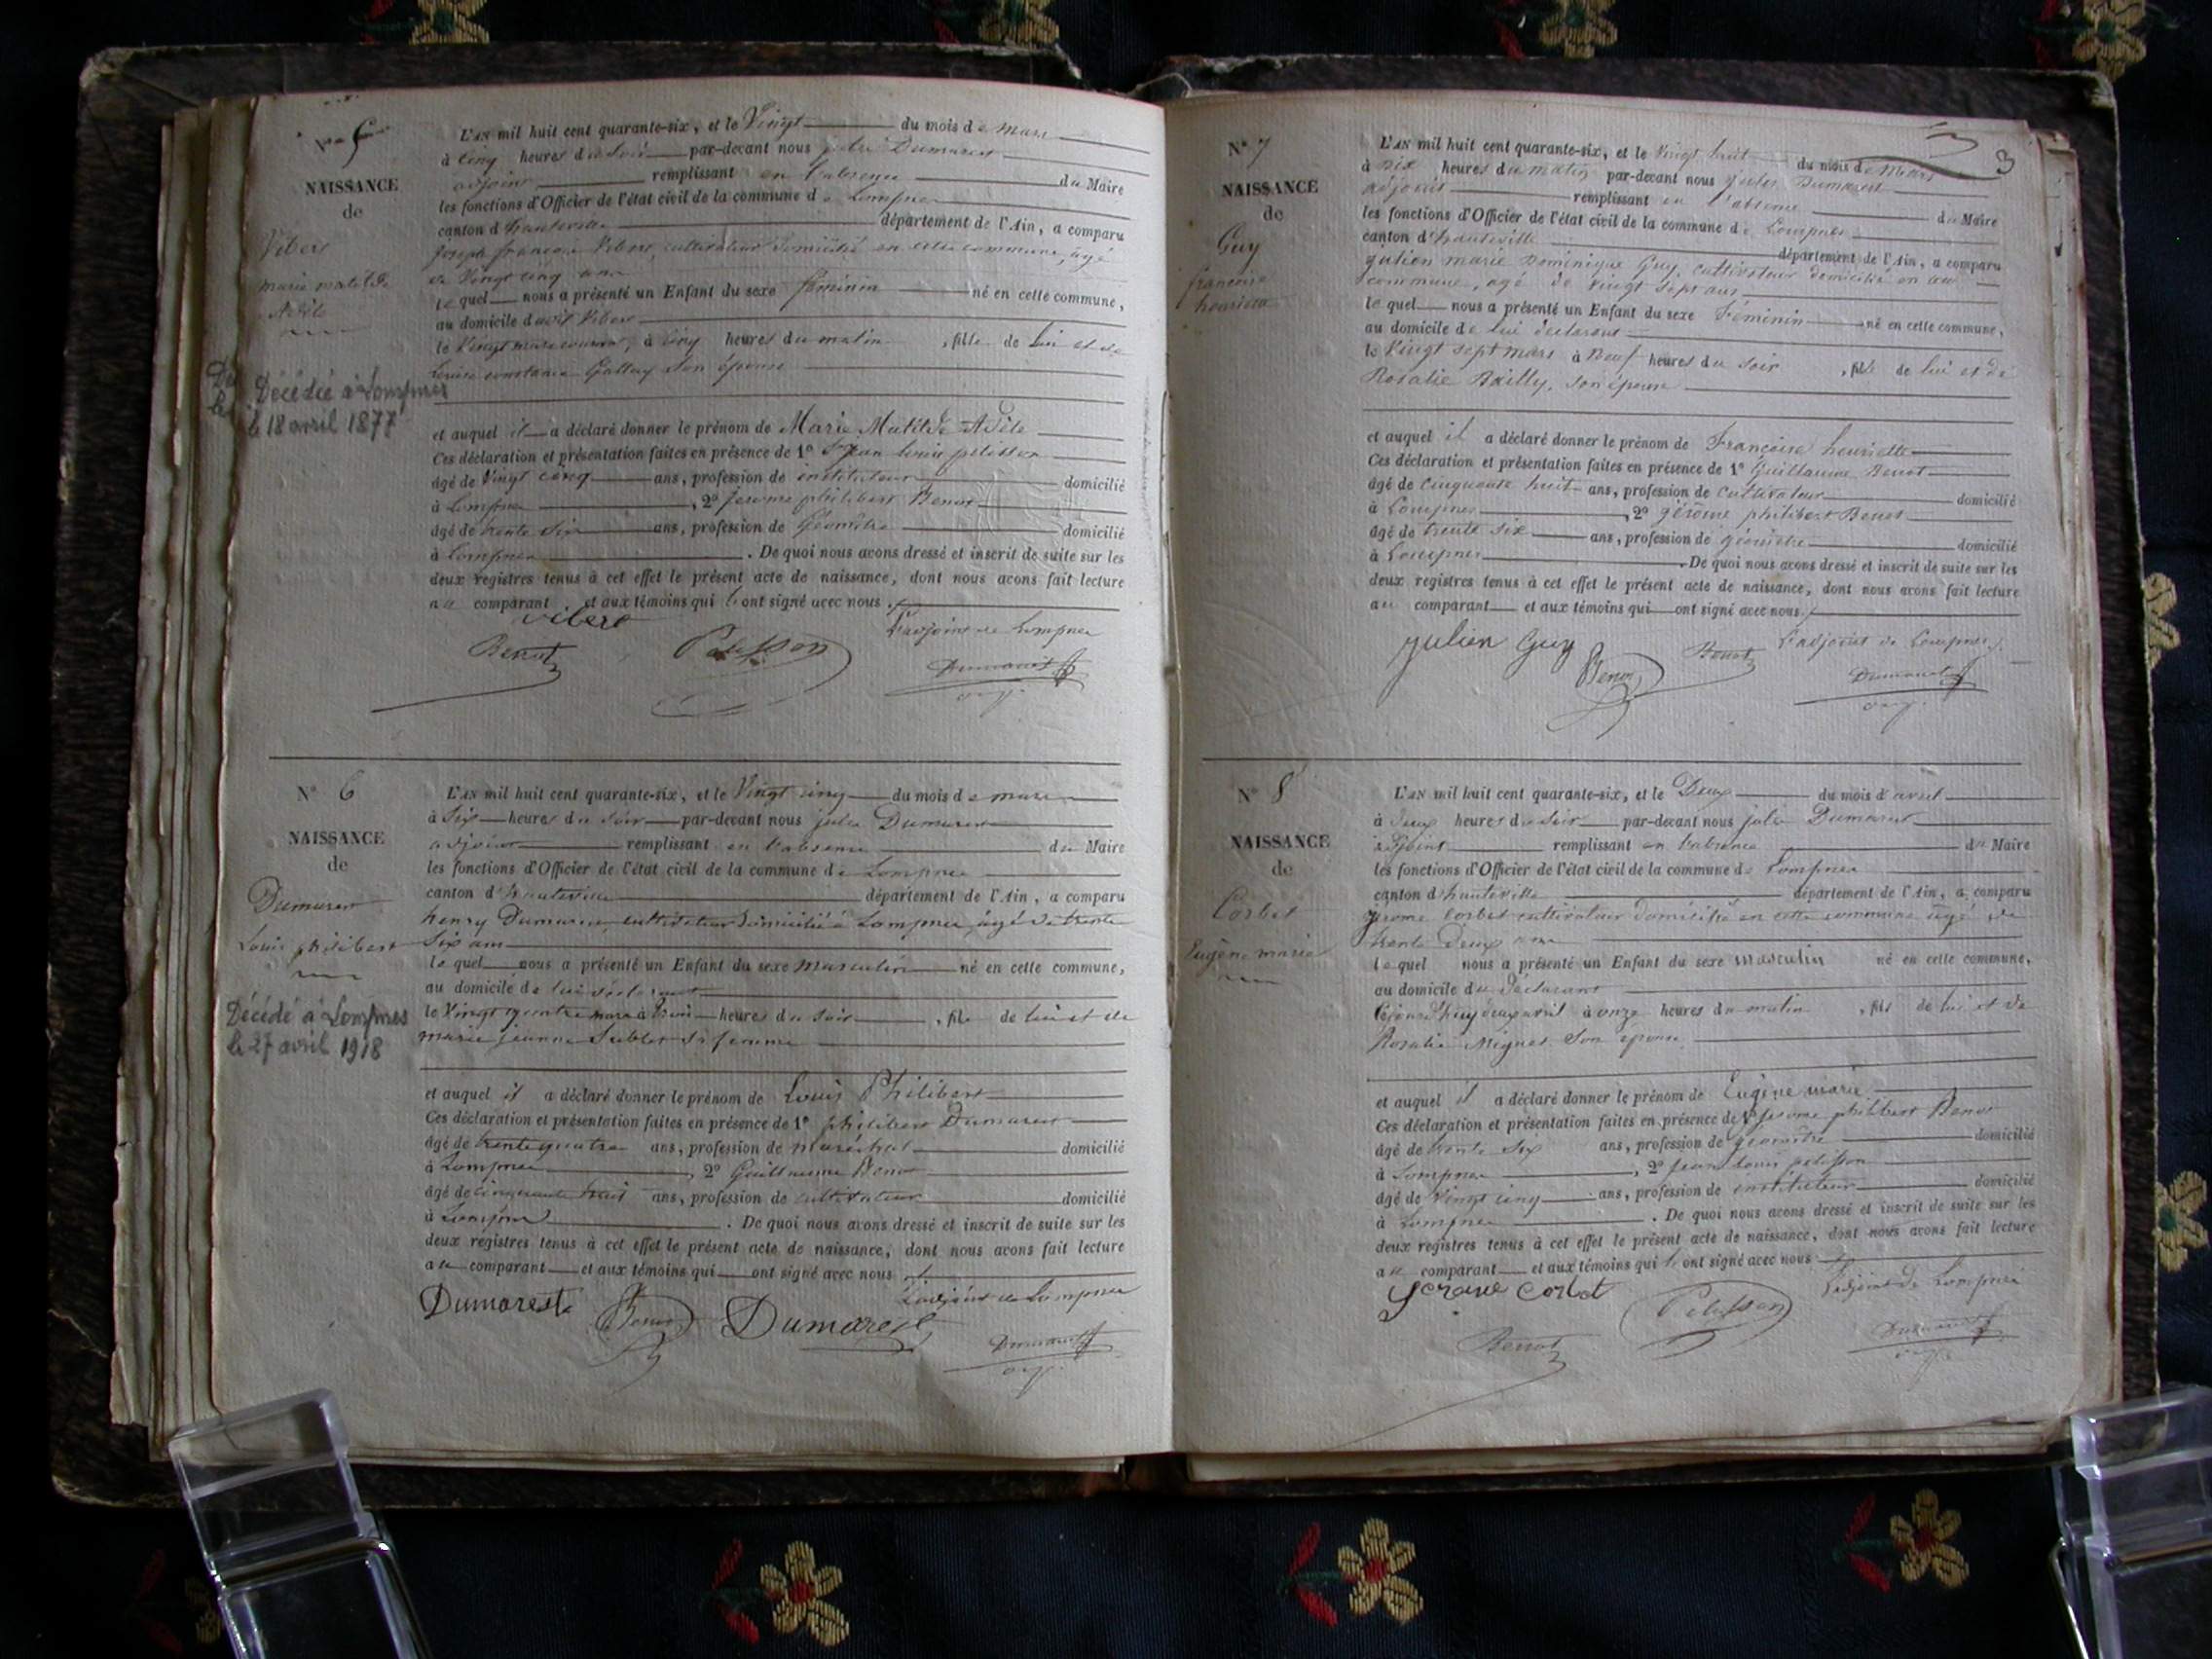 N° 5
NAISSANCE
de
Vibert
marie matilde
Adèle
Décédée à Lompnes
le 18 avril 1877
L'AN mil huit cent quarante-six, et le Vingt du mois de mars
à cinq heures du soir par-devant nous jules Dumarest
adjoint remplissant en l'absence du Maire
les fonctions d'Officier de l'état civil de la commune de Lompnes
canton d'hauteville département de l'Ain, a comparu
joseph françois Vibert, cultivateur domicilié en cette commune, agé
de Vingt cinq ans
le quel nous a présenté un Enfant du sexe féminin né en cette commune,
au domicile dudit Vibert
le Vingt mars courant, à cinq heures du matin, fille de lui et de
Louise constance Gallay son épouse
et auquel il a déclaré donner le prénom de Marie Matilde Adèle
Ces déclaration et présentation faites en présence de 1° jean louis pelisson
âgé de Vingt cinq ans, profession de instituteur domicilié
à Lompnes, 2° jerome philibert Benot
âgé de trente six ans, profession de Géomètre domicilié
à Lompnes. De quoi nous avons dressé et inscrit de suite sur les
deux registres tenus à cet effet le présent acte de naissance, dont nous avons fait lecture
au comparant et aux témoins qui ont signé avec nous.
Vibert
L'adjoint de Lompnes
Benot Pelisson Dumarest
N° 6
NAISSANCE
de
Dumarest
Louis philibert
Décédé à Lompnes
le 27 avril 1918
L'AN mil huit cent quarante-six, et le Vingt cinq du mois de mars
à Six heures du soir par-devant nous jules Dumarest
adjoint remplissant en l'absence du Maire
les fonctions d'Officier de l'état civil de la commune de Lompnes
canton d'hauteville département de l'Ain, a comparu
henry Dumarest, cultivateur domicilié à Lompnes, agé de trente
Six ans
le quel nous a présenté un Enfant du sexe masculin né en cette commune,
au domicile de lui déclarant
le Vingt quatre mars à trois heures du soir, fils de lui et de
marie jeanne Sublet sa femme
et auquel il a déclaré donner le prénom de Louis Philibert
Ces déclaration et présentation faites en présence de 1° philibert Dumarest
âgé de trente quatre ans, profession de maréchal domicilié
à Lompnes, 2° Guillaume Benot
âgé de cinquante huit ans, profession de cultivateur domicilié
à Lompnes. De quoi nous avons dressé et inscrit de suite sur les
deux registres tenus à cet effet le présent acte de naissance, dont nous avons fait lecture
au comparant et aux témoins qui ont signé avec nous
L'adjoint de Lompnes
Dumarest Benot Dumarest Dumarest
3
N° 7
NAISSANCE
de
Guy
françoise
henriette
L'AN mil huit cent quarante-six, et le Vingt huit du mois de Mars
à dix heures du matin par-devant nous jules Dumarest
adjoint remplissant en l'absence du Maire
les fonctions d'Officier de l'état civil de la commune de Lompnes
canton d'hauteville département de l'Ain, a comparu
julien marie Dominique Guy, cultivateur domicilié en
commune, agé de vingt sept ans
le quel nous a présenté un Enfant du sexe féminin né en cette commune,
au domicile de lui déclarant
le Vingt sept mars à neuf heures du soir, fille de lui et de
Rosalie Bailly, son épouse
et auquel il a déclaré donner le prénom de Françoise henriette
Ces déclaration et présentation faites en présence de 1° Guillaume Benot
âgé de cinquante huit ans, profession de cultivateur domicilié
à Lompnes, 2° gérome philibert Benot
âgé de trente six ans, profession de géomètre domicilié
à Lompnes. De quoi nous avons dressé et inscrit de suite sur les
deux registres tenus à cet effet le présent acte de naissance, dont nous avons fait lecture
au comparant et aux témoins qui ont signé avec nous.
julien Guy Benot Benot L'adjoint de Lompnes
Dumarest
N° 8
NAISSANCE
de
Corbet
Eugène marie
L'AN mil huit cent quarante-six, et le Deux du mois d'avril
à deux heures du soir par-devant nous jules Dumarest
adjoint remplissant en l'absence du Maire
les fonctions d'Officier de l'état civil de la commune de Lompnes
canton d'hauteville département de l'Ain, a comparu
jerome Corbet cultivateur domicilié en cette commune agé de
trente Deux ans
le quel nous a présenté un Enfant du sexe masculin né en cette commune,
au domicile du déclarant
aujourd'huy deux avril à onze heures du matin, fils de lui et de
Rosalie Mignet Son épouse
et auquel il a déclaré donner le prénom de Eugène marie
Ces déclaration et présentation faites en présence de 1° jerome philibert Benot
âgé de trente six ans, profession de géomètre domicilié
à Lompnes, 2° jean louis pelisson
âgé de Vingt cinq ans, profession de instituteur domicilié
à Lompnes. De quoi nous avons dressé et inscrit de suite sur les
deux registres tenus à cet effet le présent acte de naissance, dont nous avons fait lecture
au comparant et aux témoins qui ont signé avec nous
Jerome Corbet Pelisson L'adjoint de Lompnes
Benot Dumarest